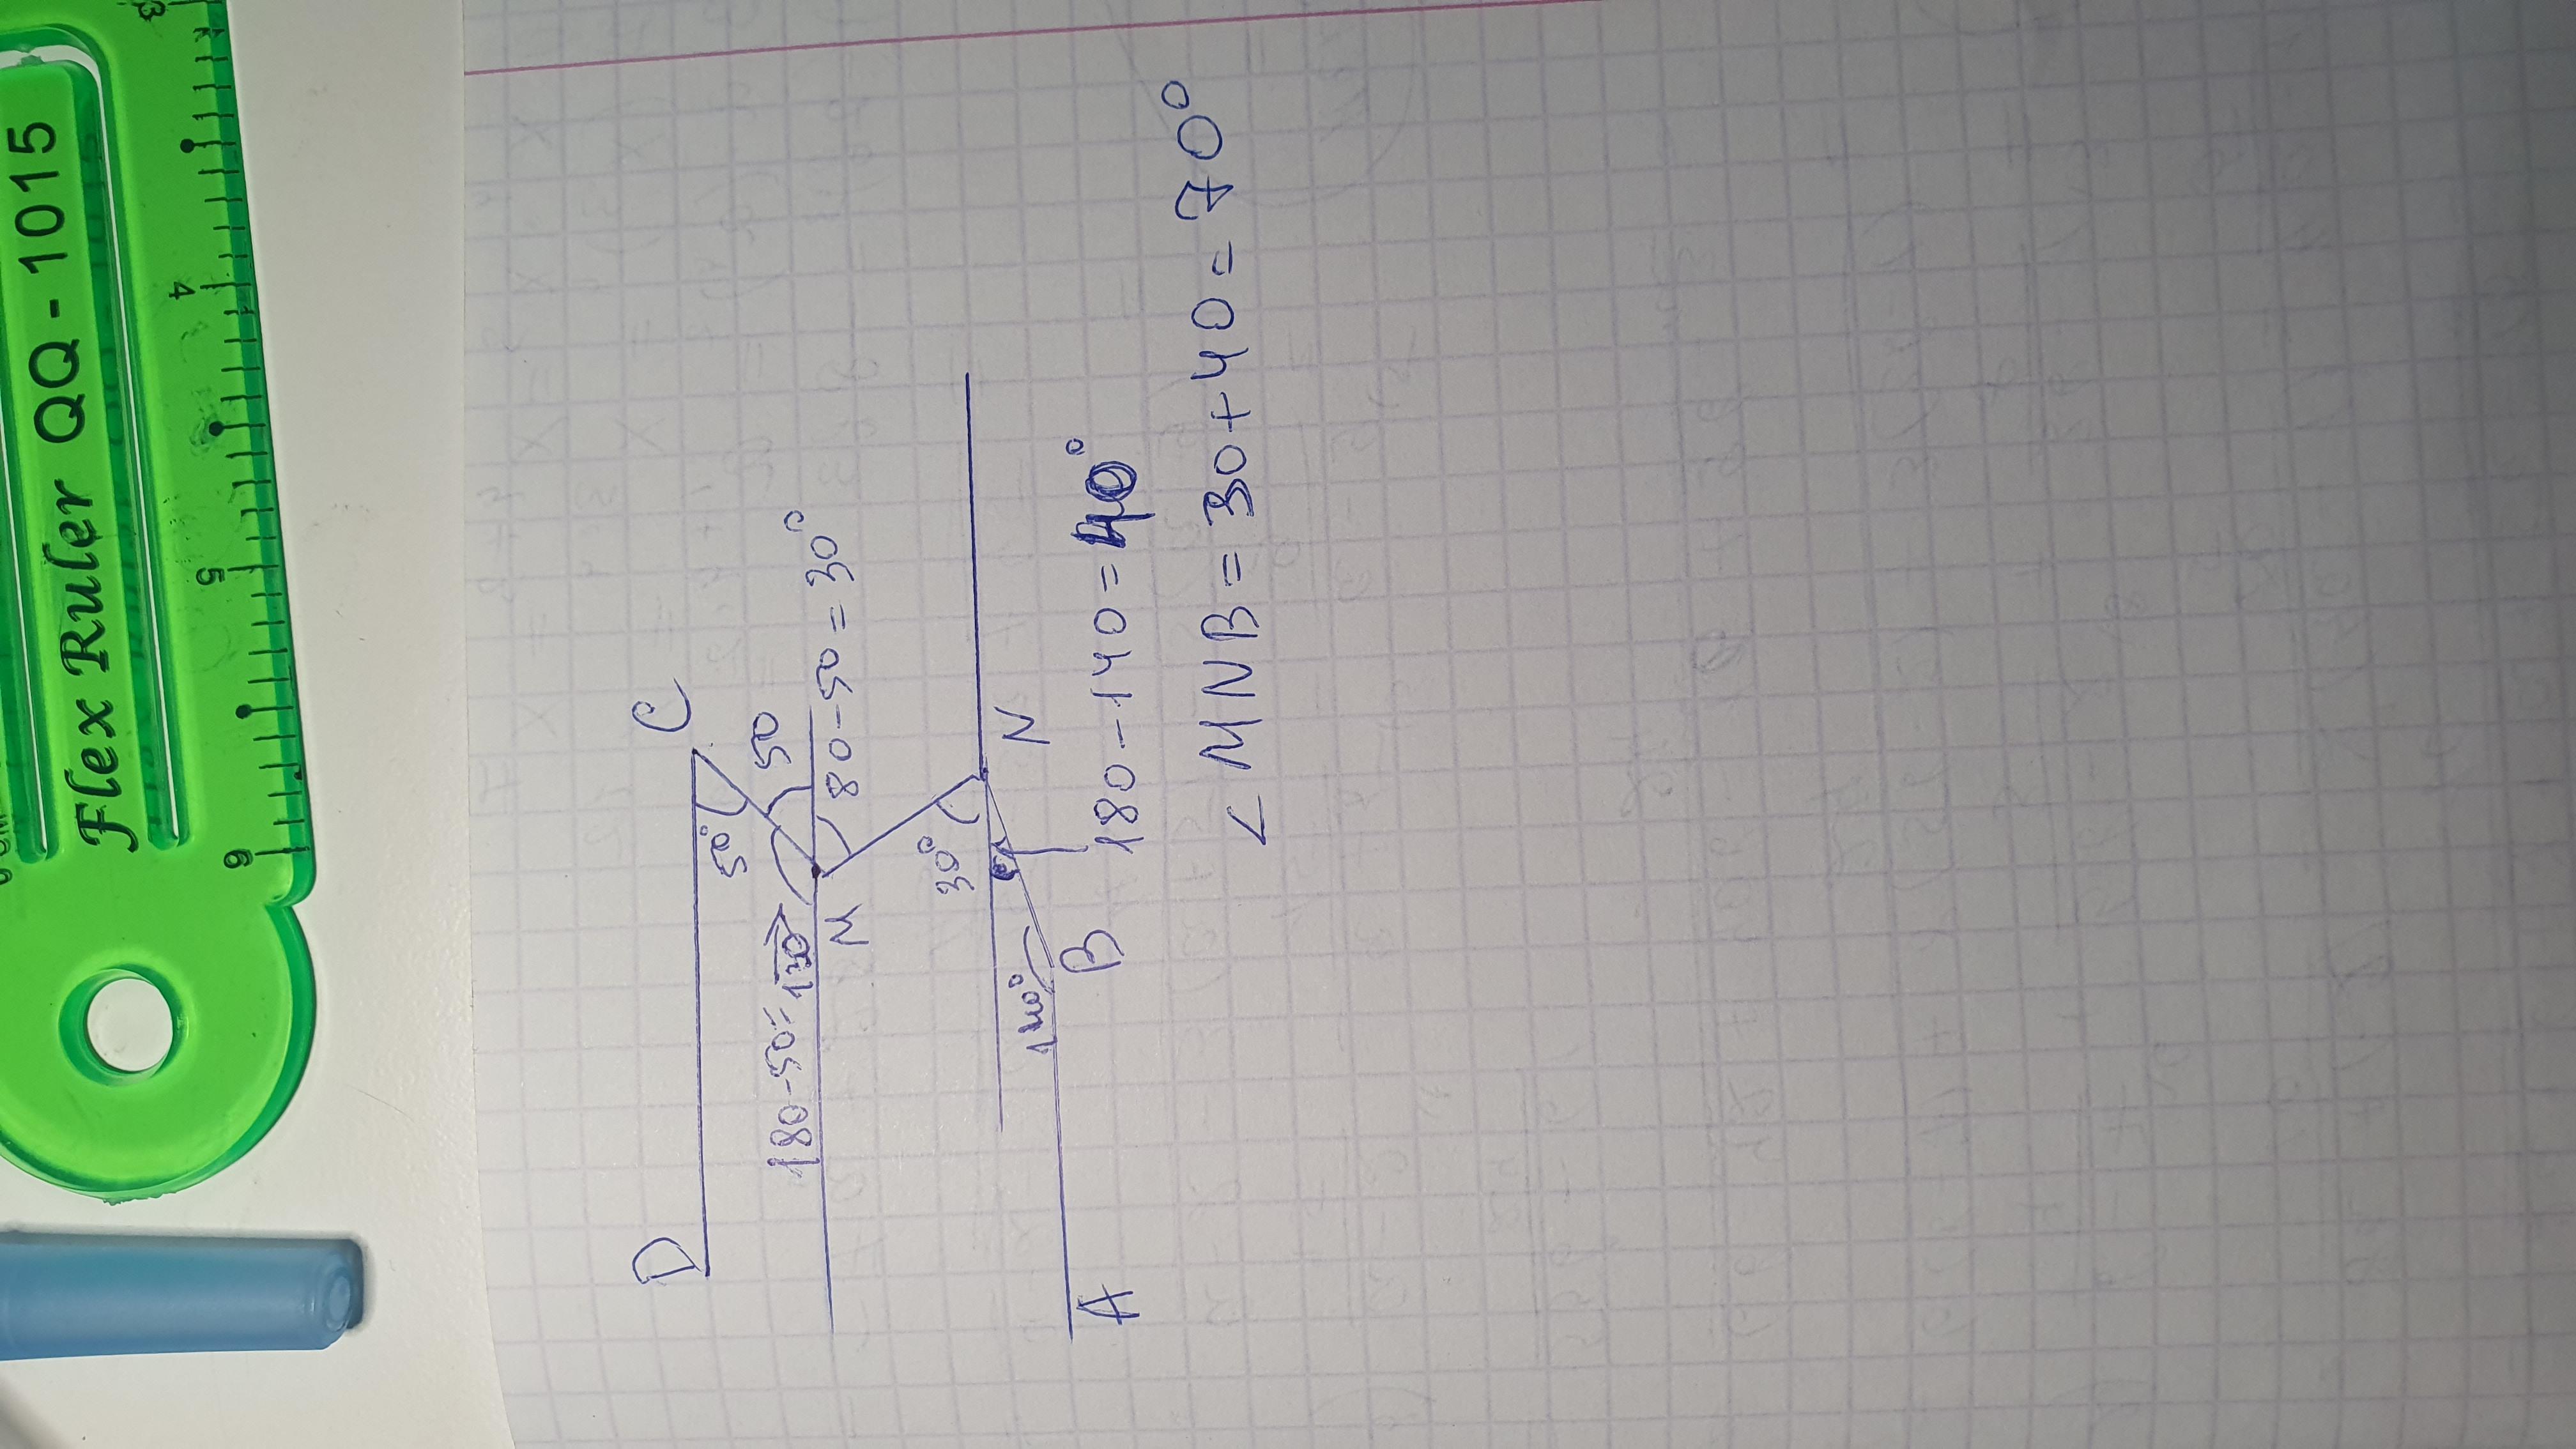 Flex Ruler QQ - 1015
3
4
5
6
D
C
50°
180-50=130
50
M
80-50=30°
30°
N
140°
B
A
180-140=40°
< MNB = 30+40 = 70°